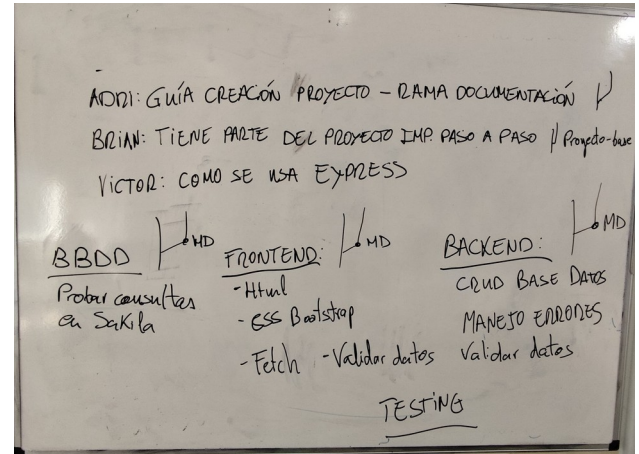 ADRI: GUÍA CREACIÓN PROYECTO - RAMA DOCUMENTACIÓN
BRIAN: TIENE PARTE DEL PROYECTO IMP. PASO A PASO Proyecto-base
VICTOR: COMO SE USA EXPRESS
BBDD MD
Probar consultas
en Sakila
FRONTEND: MD
- Html
- CSS Bootstrap
- Fetch - Validar datos
BACKEND: MD
CRUD BASE DATOS
MANEJO ERRORES
Validar datos
TESTING